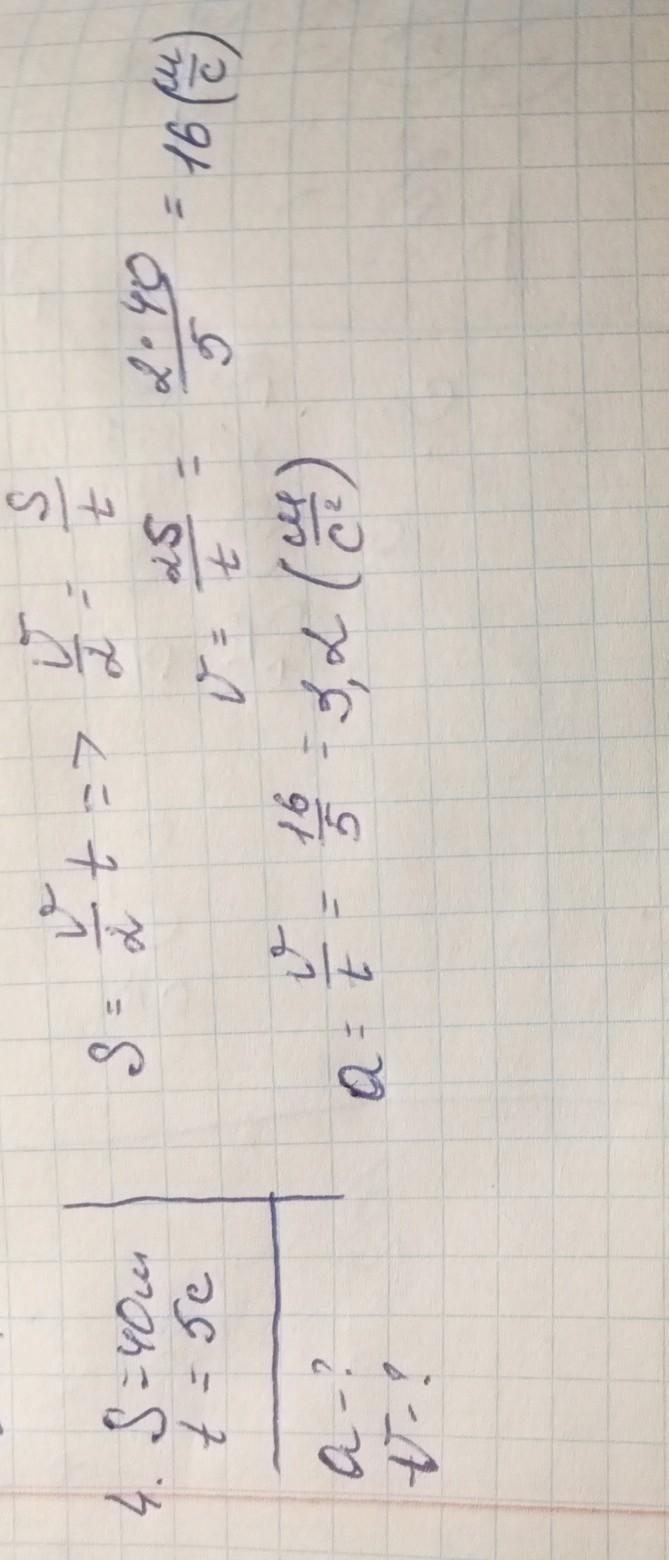 4. S = 40 м
t = 5 с
a - ?
v - ?
S = v/2 t => v/2 = S/t
v = 2S/t = 2·40/5 = 16 (м/с)
a = v/t = 16/5 = 3,2 (м/с²)